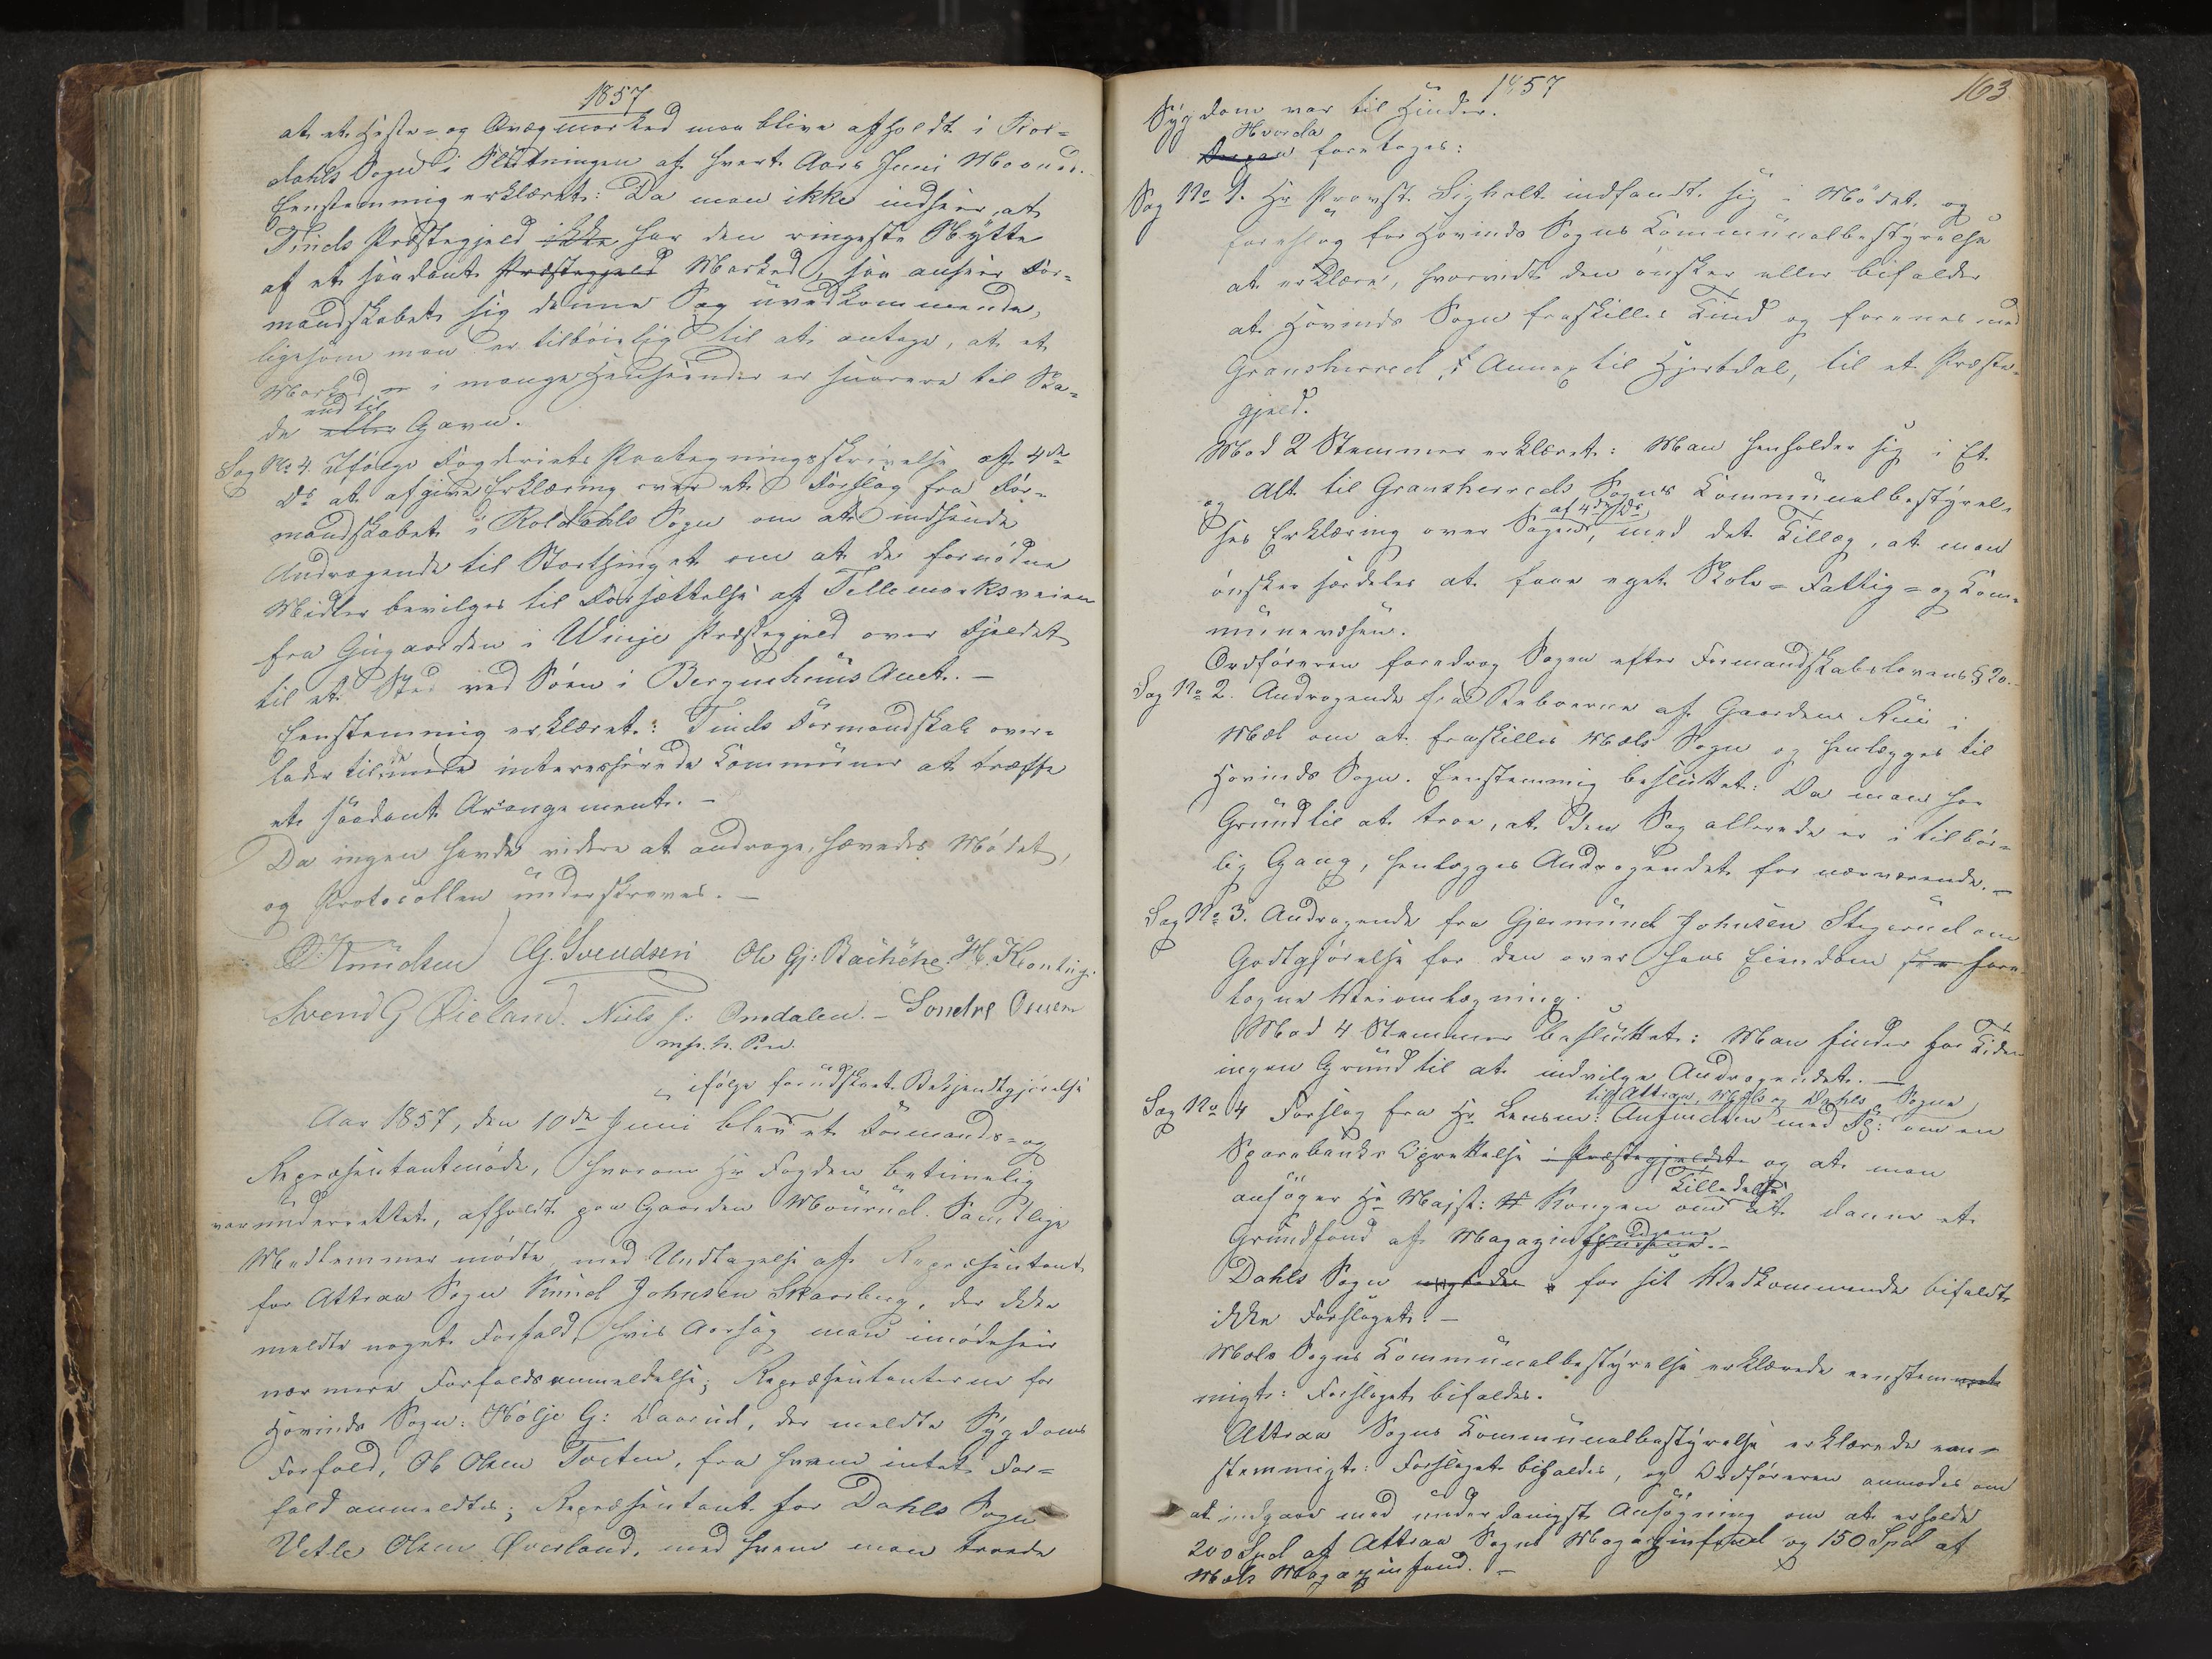 1857
at et Heste- og Qvægmarked maa blive afholdt i Rol-
dahls Sogn i Slutningen af hvert Aars Juni Maaned.
Eenstemmig erklæret: Da man ikke indseer, at
Tinds Præstegjeld ikke har den ringeste Nytte
af et saadant Præstegjeld Marked, saa anseer For-
mandskabet sig denne Sag uvedkommende,
ligesom man er tilbøielig til at antage, at et
Marked er i mange Henseender er snarere til Ska-
end til
de eller Gavn.
Sag No 4. Ifølge Fogderiets Paategningsskrivelse af 4de
Ds at afgive Erklæring over et Forslag fra For-
mandskabet i Roldahls Sogn om at indsende
Andragende til Storthinget om at de fornødne
Midler bevilges til Fortsættelse af Tellemarksveien
fra Gugaarden i Winje Præstegjeld over Fjeldet
til et Sted ved Søen i Bergenhuus Amt. -
Eenstemmig erklæret: Tinds Formandskab over-
lader til de mere interesserede Communer at træffe
et saadant Arangement. -
Da ingen havde videre at andrage, hævedes Mødet,
og Protocollen underskreves. -
O. Knudsen G. Svendsen Ole Gj: Bachehe. H. Klonteig.
Svend G Øieland. Niels J: Omdalen. - Sondre Omen
m. p. Pen.
ifølge forudskeet Bekjendtgjørelse
Aar 1857, den 10de Juni blev et Formands- og
Repræsentantmøde, hvorom Hr Fogden betimelig
var underrettet, afholdt paa Gaarden Mourud. Samtlige
Medlemmer mødte med Undtagelse af Repræsentant
for Attraa Sogn Knud Johnsen Skaarberg, der ikke
meldte noget Forfald, hvis Aarsag man imødeseer
nærmere Forfaldsanmeldelse; Repræsentanterne for
Hovinds Sogn: Hølje G: Daarud, der meldte Sygdoms
Forfald, Ole Olsen Toeten, fra hvem intet For-
fald anmeldtes; Repræsentant for Dahls Sogn
Vetle Olsen Øverland, med hvem man troede
1857
163
Sygdom var til Hinder.
Hvorda
foretoges:
Sag No 1. Hr Provst Sigholt indfandt sig i Mødet og
foreslog for Hovinds Sogns Communalbestyrelse
at erklære, hvorvidt den ønsker eller bifalder
at Hovinds Sogn fraskilles Tind og forenes med
Gransherred, Annex til Hjertdal, til et Præste-
gjeld.
Mod 2 Stemmer erklæret: Man henholder sig i Et
og Alt til Gransherreds Sogns Communalbestyrel-
af 4de Ds
ses Erklæring over Sagen, med det Tillæg, at man
ønsker særdeles at faae eget Skole- Fattig- og Com-
munevæsen.
Ordføreren foredrog Sagen efter Formandskabslovens § 20.
Sag No 2. Andragende fra Beboerne af Gaarden Rui i
Mæl om at fraskilles Mæls Sogn og henlægges til
Hovinds Sogn. Eenstemmig besluttet: Da man har
Grund til at troe, at den Sag allerede er i tilbør-
lig Gang, henlægges Andragendet for nærværende. -
Sag No 3. Andragende fra Gjermund Johnsen Stegarud om
Godtgjørelse for den over hans Eiendom fore-
tagne Veiomlægning.
Mod 4 Stemmer besluttet: Man finder for Tiden
ingen Grund til at indvilge Andragendet. -
till Attraa, Mæls og Dahls Sogne
Sag No 4 Forslag fra Hr Lensm: Anfindsen med Fl: om en
Sparebanks Oprettelse i Præstegjeldet og at man
Tilladelse
ansøger Hs Majst: Kongen om at danne et
Grundfond af Magazin
Dahls Sogn for sit Vedkommende bifaldt
ikke Forslaget. -
Mæls Sogns Communalbestyrelse erklærede eenstem-
migt: Forslaget bifaldes.
Attraa Sogns Communalbestyrelse erklærede een-
stemmigt: Forslaget bifaldes, og Ordføreren anmodes om
at indgaae med underdanigst Ansøgning om at erholde
200 Spd af Attraa Sogns Magazinfond og 150 Spd af
Mæls Magazinfond. -